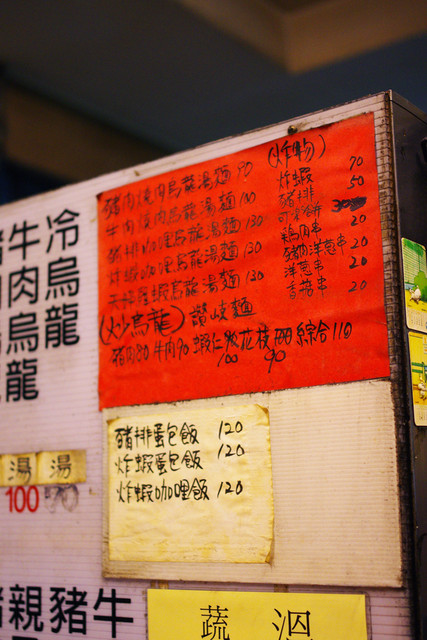 冷烏龍
牛肉烏龍
湯 湯
100
親 豬 牛
豬肉燒肉烏龍湯麵 90
牛肉燒肉烏龍湯麵 100
豬排咖哩烏龍湯麵 130
炸蝦咖哩烏龍湯麵 130
烏龍湯麵 130
(炒烏龍) 讚岐麵
豬肉80 牛肉90 蝦仁 100 花枝 90 綜合110
(炸物)
炸蝦 70
炸豬排 50
可樂餅
雞肉串 20
豬肉洋蔥串 20
洋蔥串 20
香菇串 20
豬排蛋包飯 120
炸蝦蛋包飯 120
炸蝦咖哩飯 120
蔬 溫